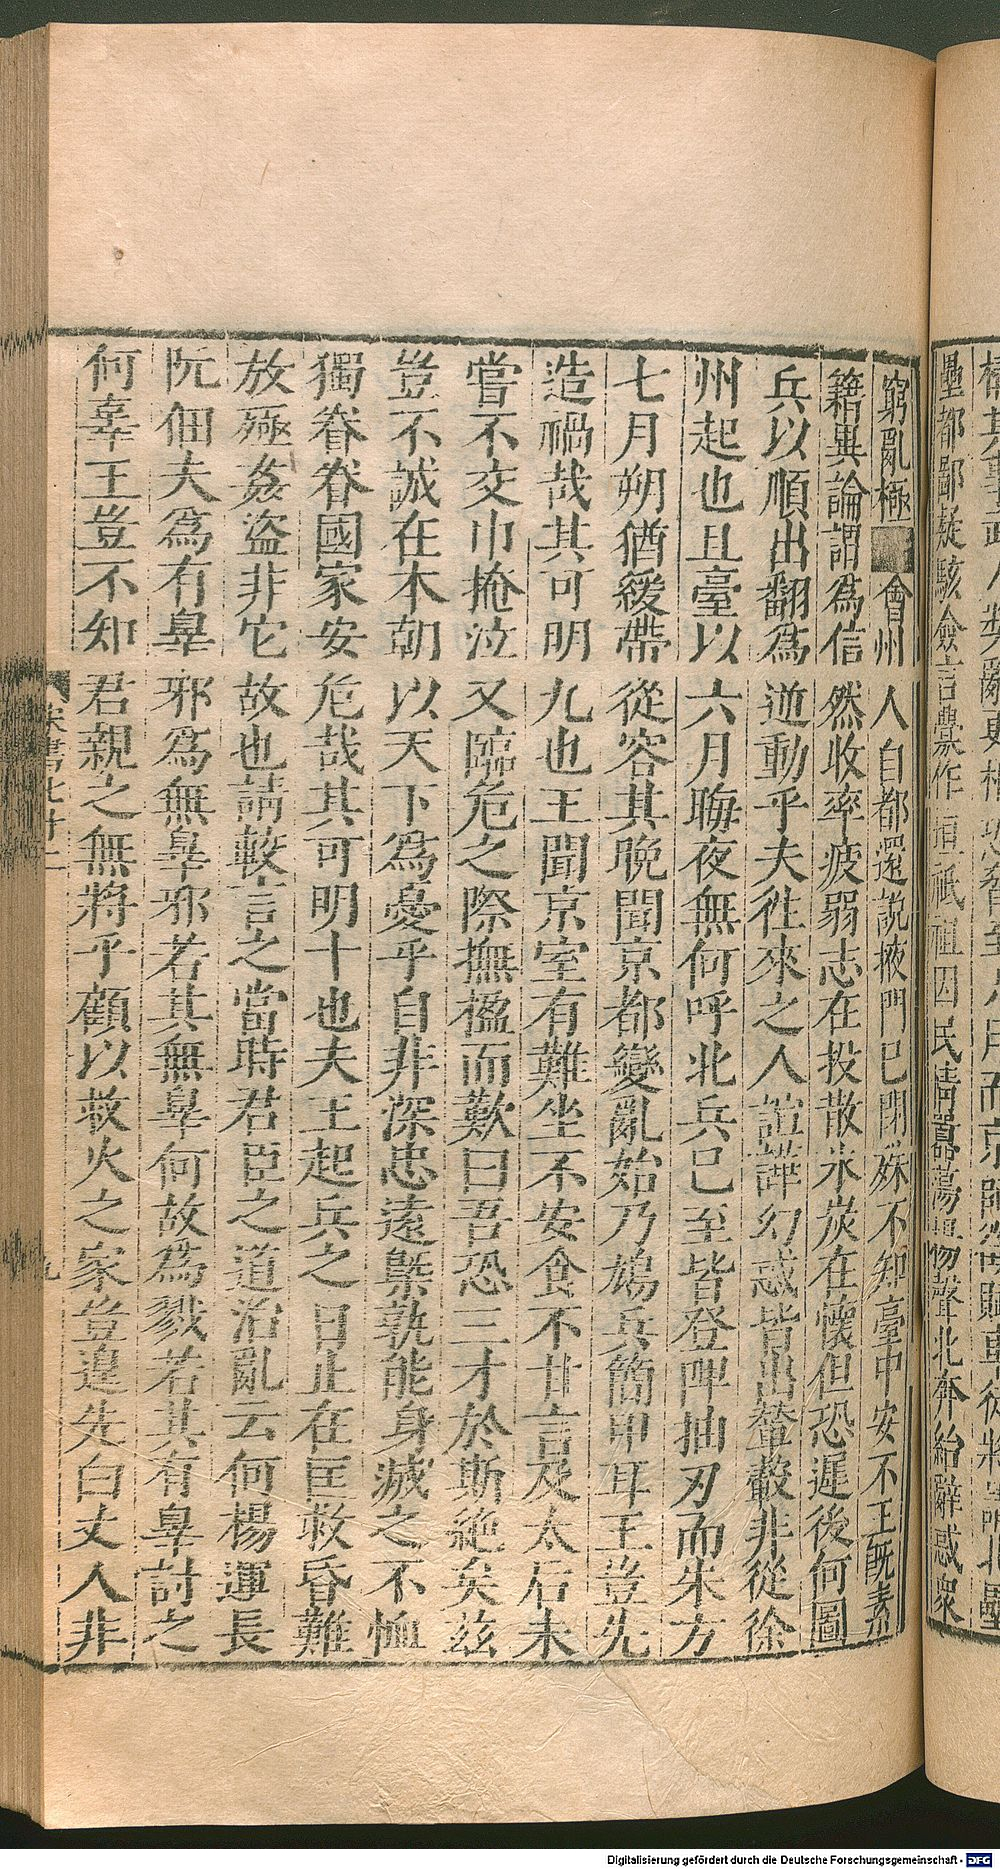 壘都鄙疑駭僉言釁作垣祗祖因民情囂蕩揚聲北奔紿辭惑衆
窮亂極會州人自都還說掖門已閉殊不知臺中安不王既素
籍異論謂爲信然收率疲弱志在投散氷炭在懷但恐遲後何圖
兵以順出翻爲逆動乎夫徃來之人諠譁幻惑皆出輦轂非從徐
州起也且臺以六月晦夜無何呼北兵巳至皆登陴抽刃而朱方
七月朔猶緩帶從容其晚聞京都變亂始乃鳩兵簡甲耳王豈先
造禍哉其可明九也王聞京室有難坐不安食不甘言及太后未
嘗不交巾掩泣又臨危之際撫楹而歎曰吾恐三才於斯絶矣茲
豈不誠在本朝以天下爲憂乎自非深忠遠槩孰能身滅之不恤
獨眷眷國家安危哉其可明十也夫王起兵之日止在匡救昏難
放殛姦盜非它故也請較言之當時君臣之道治亂云何楊運長
阮佃夫爲有辠邪爲無辠邪若其無辠何故爲戮若其有辠討之
何辜王豈不知君親之無將乎顧以救火之家豈遑先白丈人非
宋書七十二
九
Digitalisierung gefördert durch die Deutsche Forschungsgemeinschaft - DFG